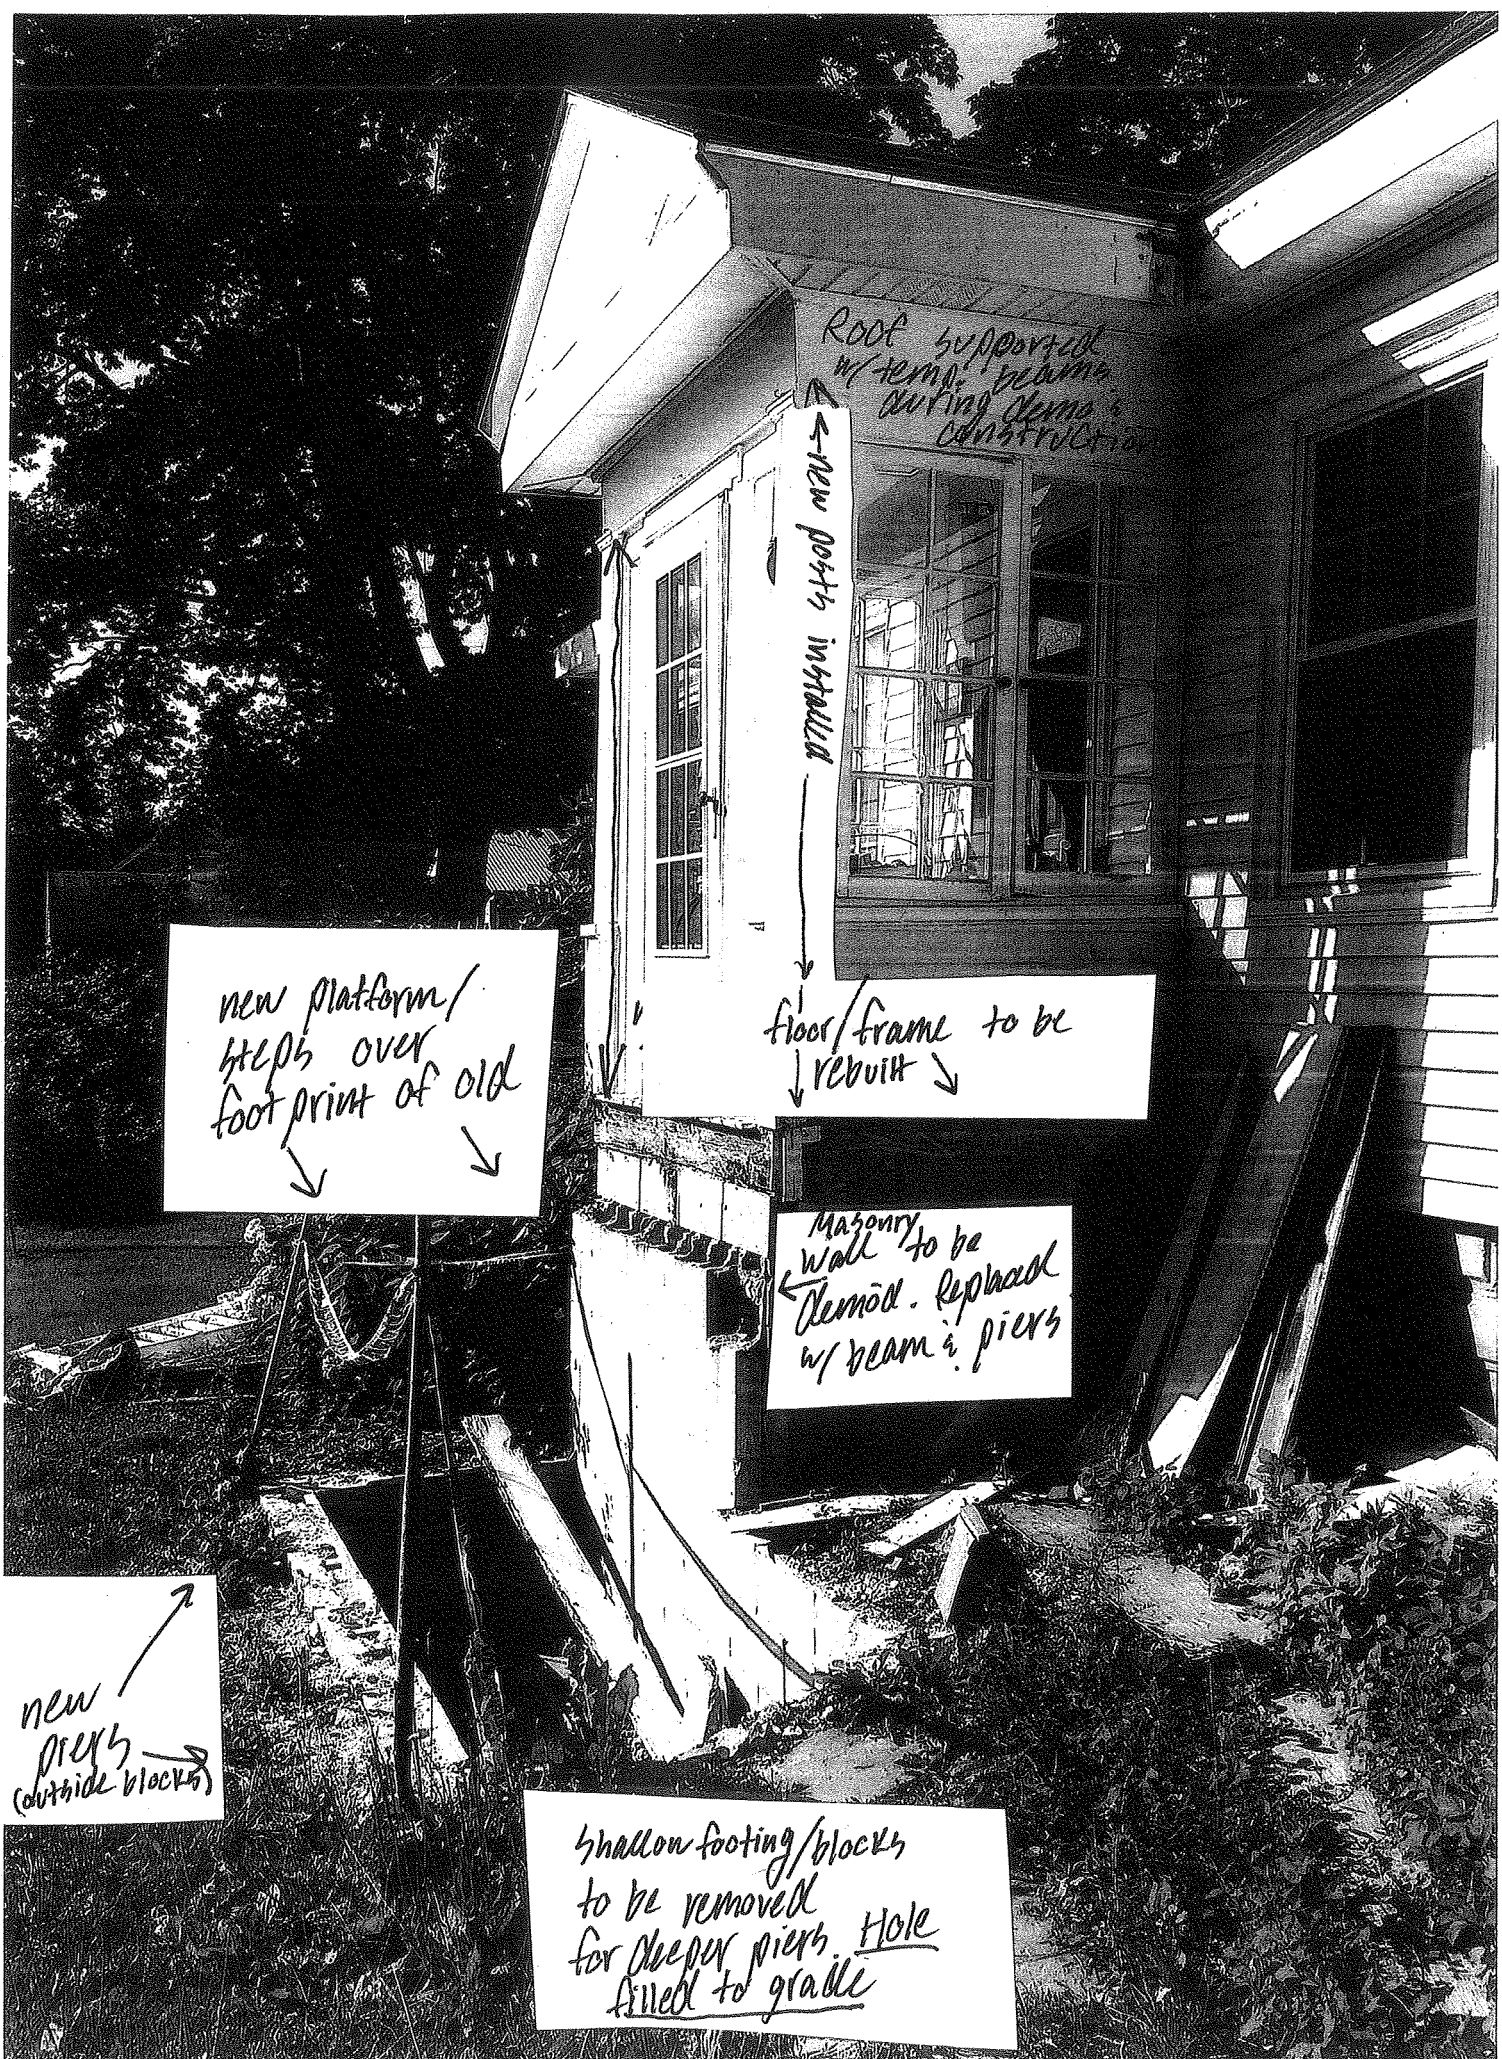 Roof supported
w/ temp. beams
during demo &
construction
← new posts installed →
new platform/
steps over
footprint of old
floor/frame to be
rebuilt
Masonry
wall to be
demo'd. Replaced
w/ beam & piers
new
piers
(outside blocks)
shallow footing/blocks
to be removed
for deeper piers. Hole
filled to grade